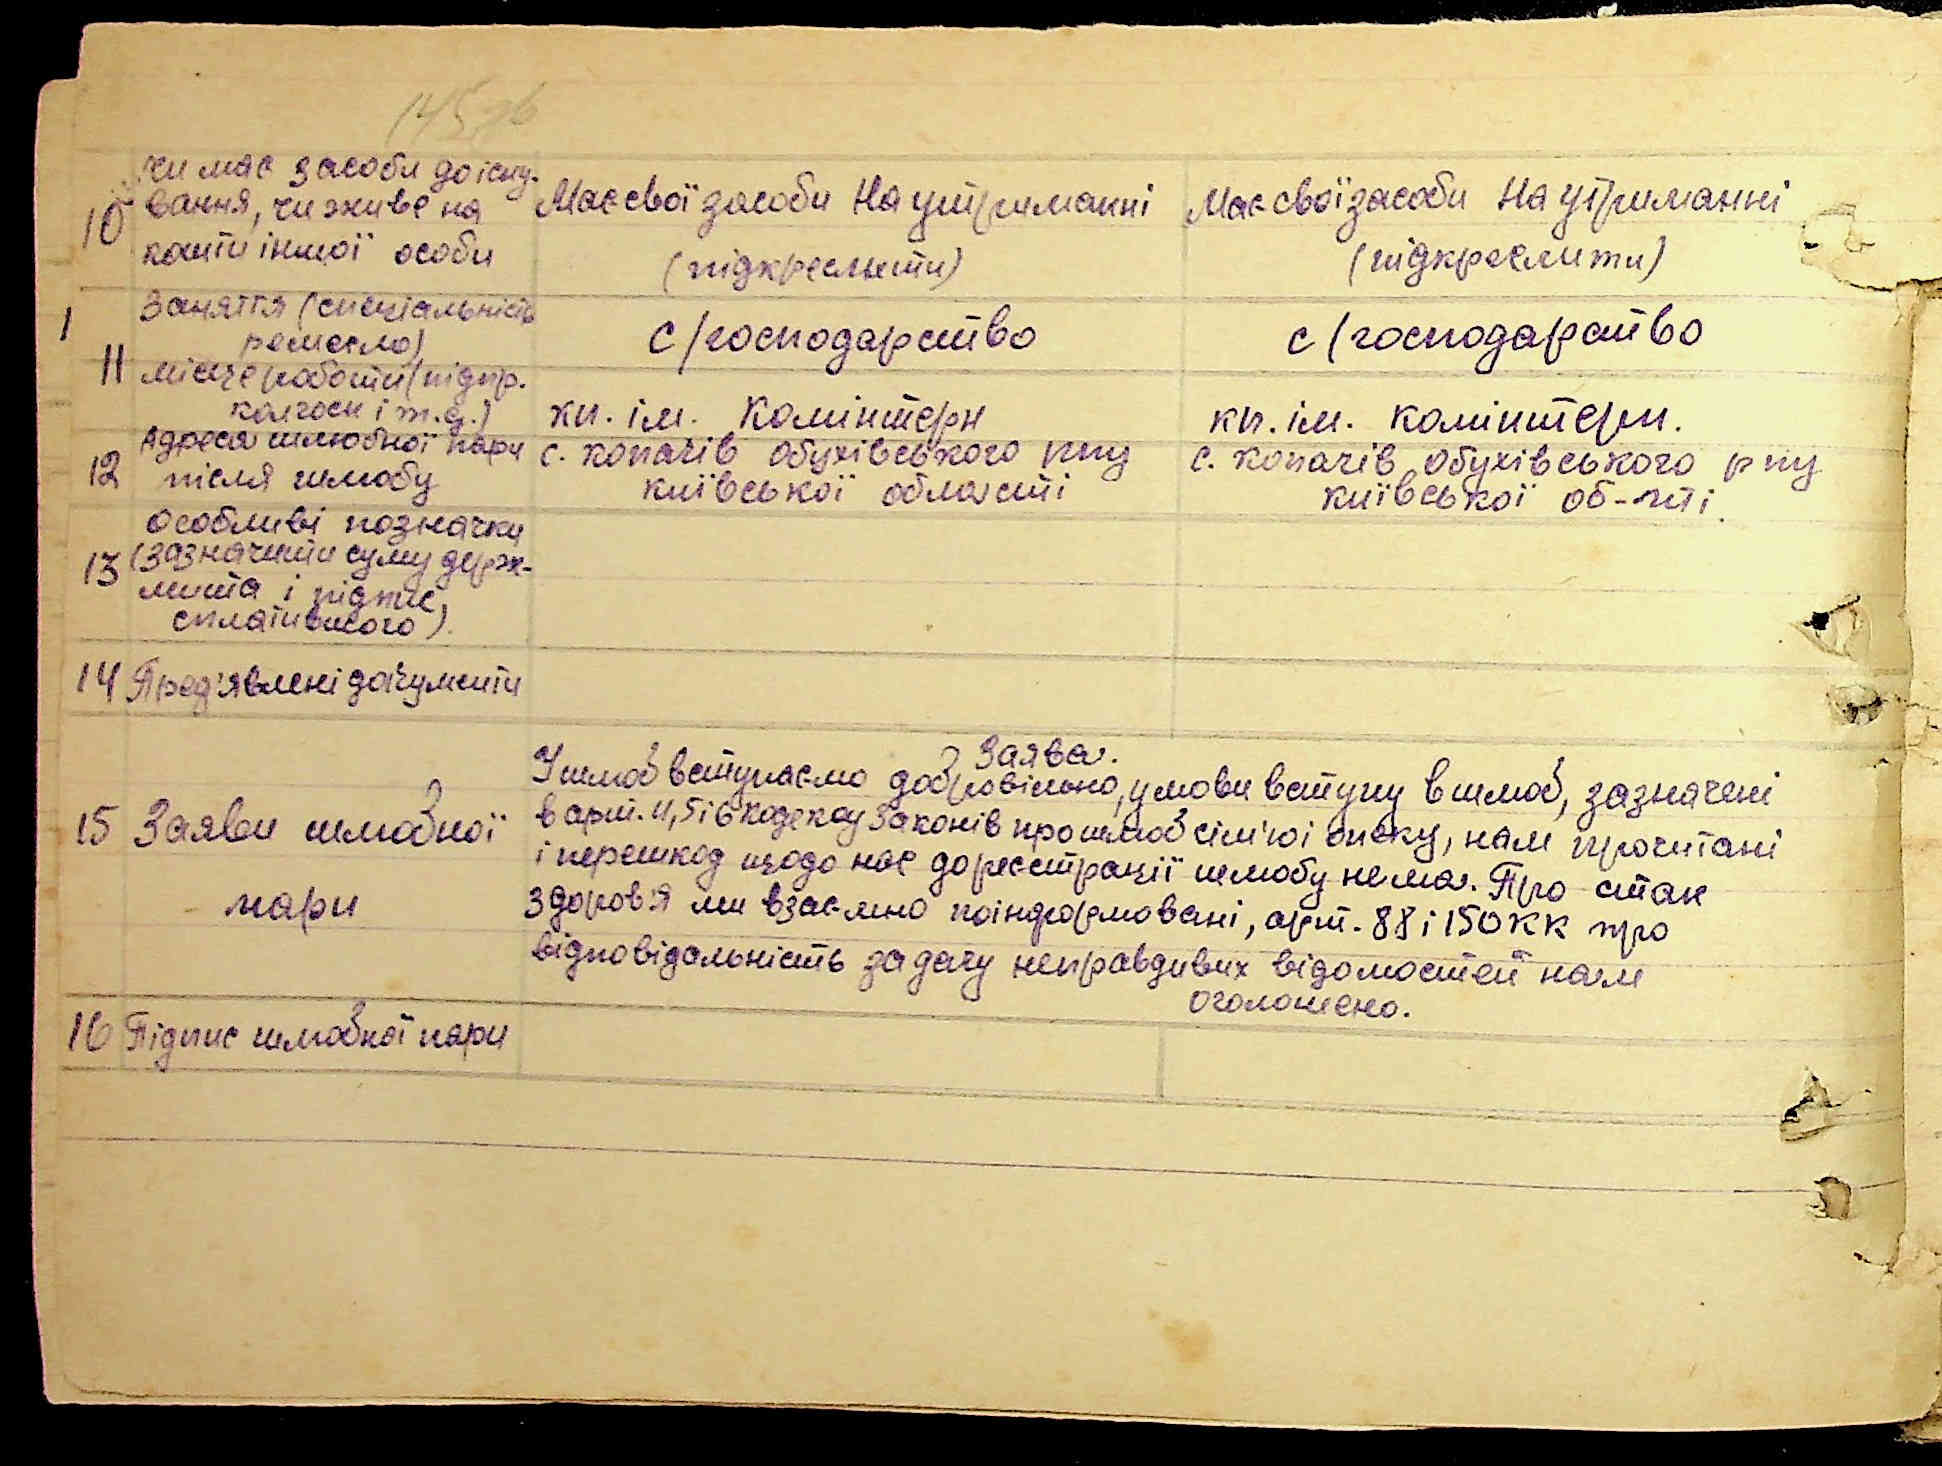 145зв
чи має засоби до існу-
10 вання, чи живе на
кошти іншої особи
Має свої засоби На утриманні
(підкреслити)
Має свої засоби На утриманні
(підкреслити)
1
11 Заняття (спеціальність
ремесло)
місце роботи (підпр.
колгосп і т.д.)
с/господарство
с/господарство
кп. ім. Комінтерн
кп. ім. Комінтерн.
12 Адреса шлюбної пари
після шлюбу
с. Копачів Обухівського рну
київської області
с. Копачів Обухівського рну
київської об-сті.
13 Особливі позначки
(зазначити суму держ-
мита і підпис
сплатившого).
14 Пред'явлені документи
15 Заяви шлюбної
пари
Заява.
У шлюб вступаємо добровільно, умови вступу в шлюб, зазначені
в арт. 4,5 і 6 Кодексу Законів про шлюб сім'ю і опеку, нам прочитані
і перешкод щодо нас до реєстрації шлюбу нема. Про стан
здоров'я ми взаємно поінформовані, арт. 88 і 150 КК про
відповідальність за дачу неправдивих відомостей нам
оголошено.
16 Підпис шлюбної пари